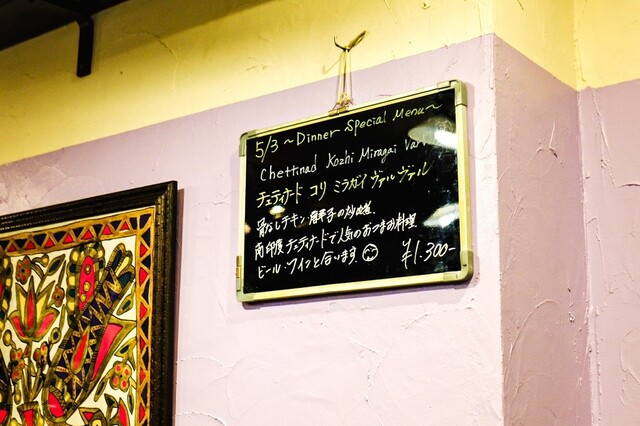 5/3 ~Dinner Special Menu~
Chettinad Kozhi Miragai Var
チェティナード コリ ミラガイ ヴァル ヴァル
骨なしチキン 唐辛子の炒め
南印度チェティナードで人気のおつまみ料理
ビール・ワインと合います ¥1,300-